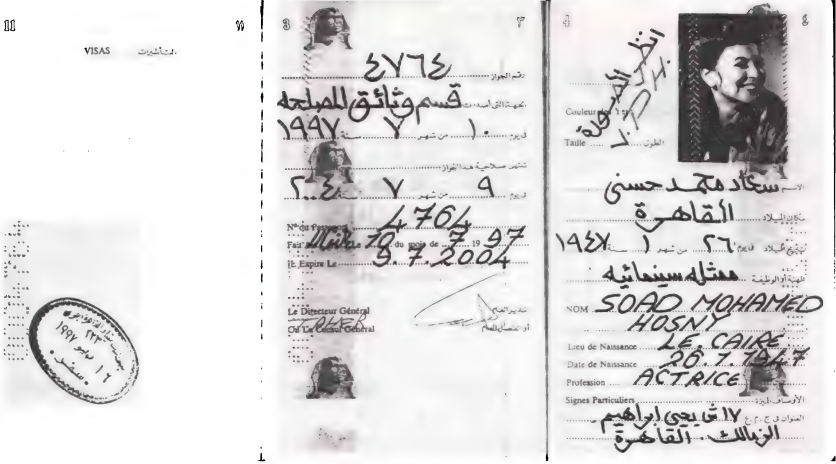 11
١١
VISAS التأشيرات
١٦ ١٩٩٧
3
٣
رقم الجواز ٤٧٦٤
قسم وثائق المصلحه
فى يوم ١٠ من شهر ٧ سنة ١٩٩٧
تنتهى صلاحية هذا الجواز
فى يوم ٩ من شهر ٧ سنة ٢٠٠٤
No du Passeport 4764
Fait Le 10 du mois de 7 19 97
IL Expire Le 9.7.2004
Le Directeur Général المدير العام
Ou Le Consul Général أو القنصل العام
٤
انظر الصورة
V.P.H.
Couleur des Yeux
Taille الطول
الاسم سعاد محمد حسنى
مكان الميلاد القاهرة
تاريخ الميلاد فى يوم ٢٦ من شهر ١ سنة ١٩٤٧
المهنة أو الوظيفة ممثله سينمائيه
NOM SOAD MOHAMED
HOSNY
Lieu de Naissance LE CAIRE
Date de Naissance 26.1.1947
Profession ACTRICE
Signes Particuliers الأوصاف المميزة
العنوان فى ج . م . ع ١٧ ش يحى ابراهيم
الزمالك . القاهرة